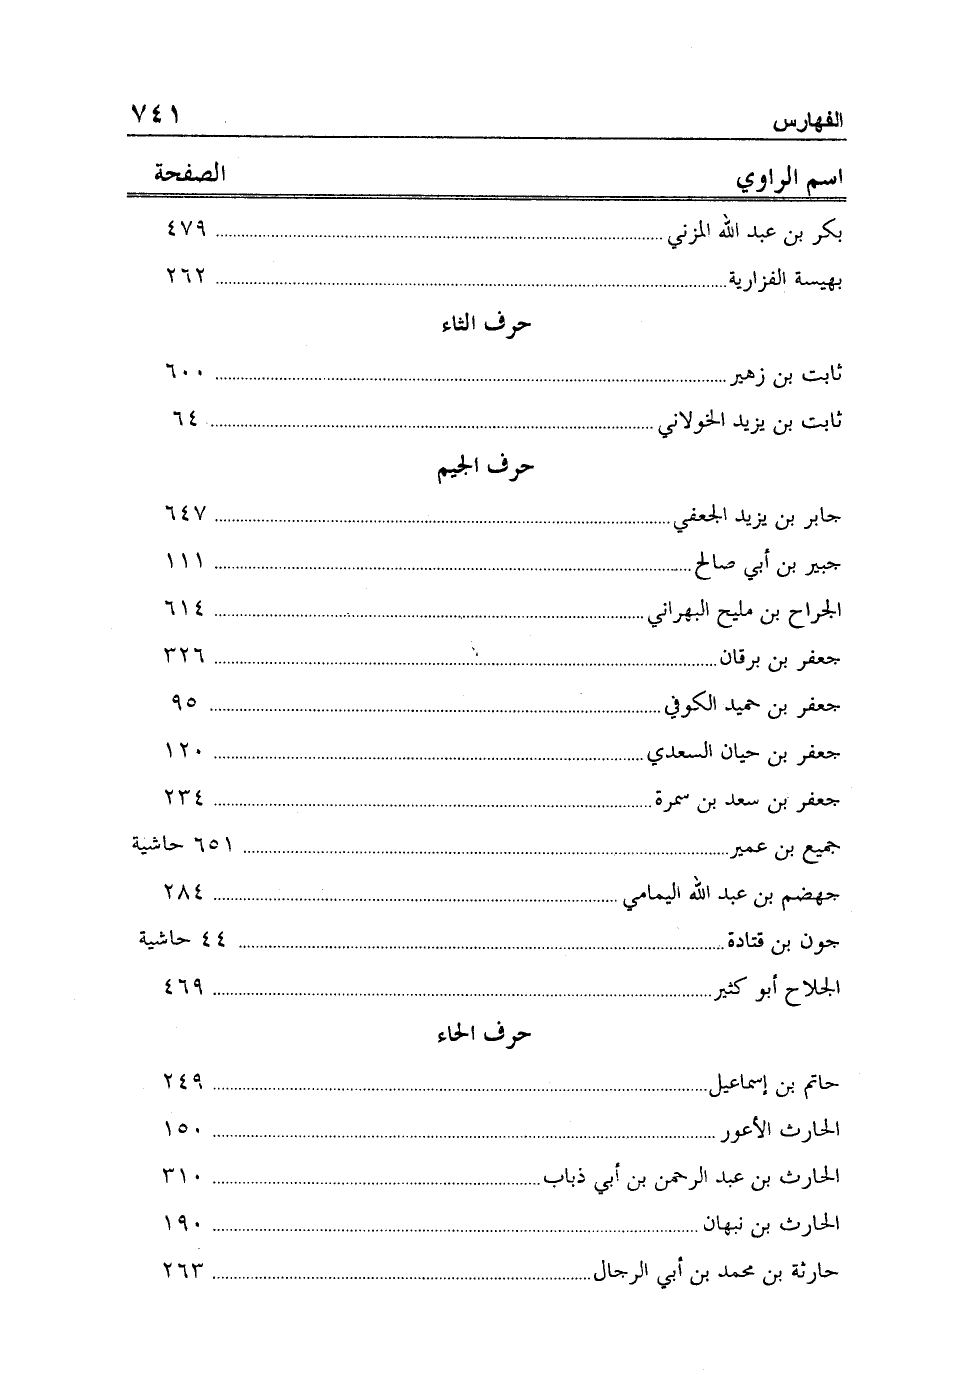 الفهارس ٧٤١
اسم الراوي الصفحة
بكر بن عبد الله المزني ٤٧٩
بهيسة الفزارية ٢٦٢
حرف الثاء
ثابت بن زهير ٦٠٠
ثابت بن يزيد الخولاني ٦٤
حرف الجيم
جابر بن يزيد الجعفي ٦٤٧
جبير بن أبي صالح ١١١
الجراح بن مليح البهراني ٦١٤
جعفر بن برقان ٣٢٦
جعفر بن حميد الكوفي ٩٥
جعفر بن حيان السعدي ١٢٠
جعفر بن سعد بن سمرة ٢٣٤
جميع بن عمير ٦٥١ حاشية
جهضم بن عبد الله اليمامي ٢٨٤
جون بن قتادة ٤٤ حاشية
الجلاح أبو كثير ٤٦٩
حرف الحاء
حاتم بن إسماعيل ٢٤٩
الحارث الأعور ١٥٠
الحارث بن عبد الرحمن بن أبي ذباب ٣١٠
الحارث بن نبهان ١٩٠
حارثة بن محمد بن أبي الرجال ٢٦٣